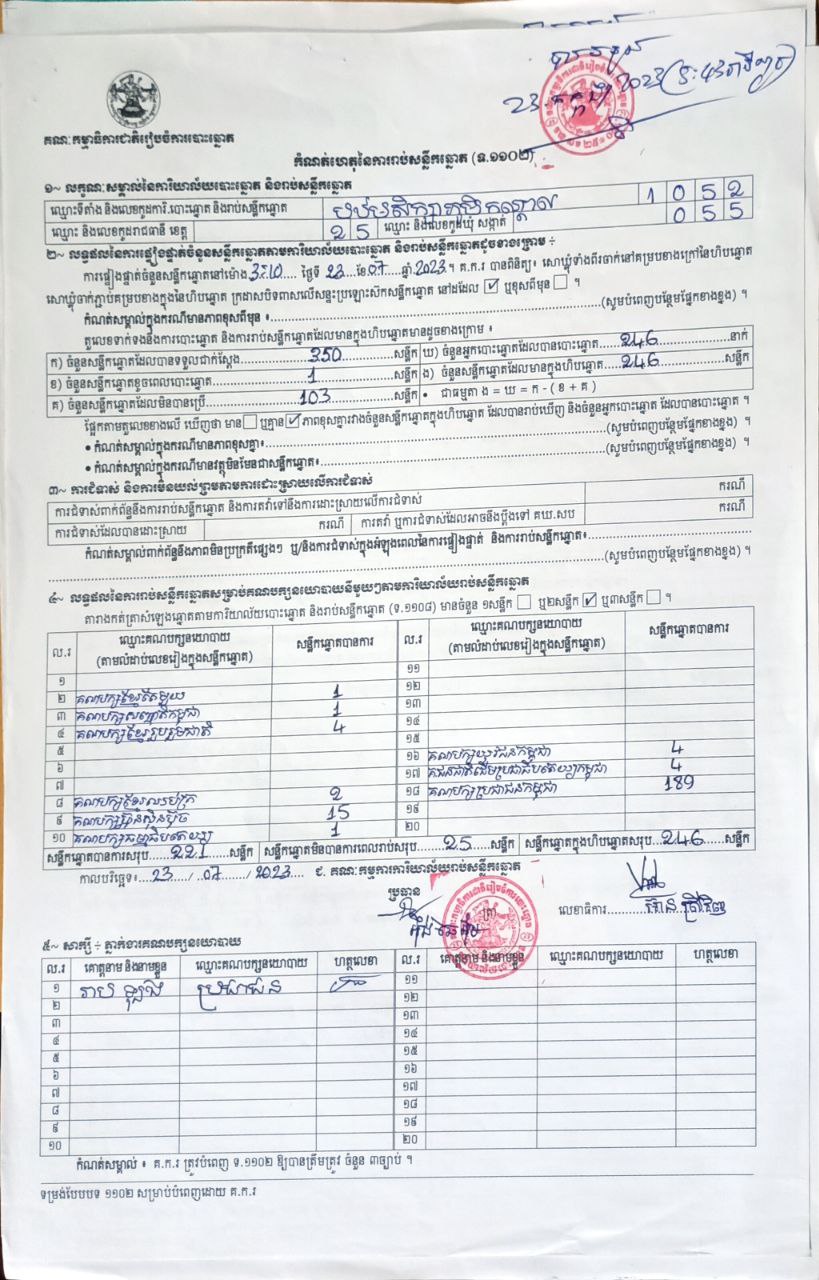 គណៈកម្មាធិការជាតិរៀបចំការបោះឆ្នោត
កំណត់ហេតុនៃការរាប់សន្លឹកឆ្នោត (ទ.១១០២)
១~ លក្ខណៈសម្គាល់នៃការិយាល័យបោះឆ្នោត និងរាប់សន្លឹកឆ្នោត
ឈ្មោះទីតាំង និងលេខកូដការិ.បោះឆ្នោត និងរាប់សន្លឹកឆ្នោត 1052
ឈ្មោះ និងលេខកូដរាជធានី ខេត្ត 25 ឈ្មោះ និងលេខកូដឃុំ សង្កាត់ 055
២~ លទ្ធផលនៃការផ្ទៀងផ្ទាត់ចំនួនសន្លឹកឆ្នោតតាមការិយាល័យបោះឆ្នោត និងរាប់សន្លឹកឆ្នោតដូចខាងក្រោម ÷
ការផ្ទៀងផ្ទាត់ចំនួនសន្លឹកឆ្នោតនៅម៉ោង 3:10 ថ្ងៃទី 23 ខែ 07 ឆ្នាំ 2023 ។ គ.ក.រ បានពិនិត្យ៖ សោឃ្លុំទាំងពីរចាក់នៅគម្របខាងក្រៅនៃហិបឆ្នោត
សោឃ្លុំចាក់ភ្ជាប់គម្របខាងក្នុងនៃហិបឆ្នោត ក្រដាសបិទពាសលើសន្ទះប្រឡោះស៊កសន្លឹកឆ្នោត នៅដដែល ☑ ឬខុសពីមុន ☐ ។
កំណត់សម្គាល់ក្នុងករណីមានភាពខុសពីមុន ៖ (សូមបំពេញបន្ថែមផ្នែកខាងខ្នង) ។
តួលេខទាក់ទងនឹងការបោះឆ្នោត និងការរាប់សន្លឹកឆ្នោតដែលមានក្នុងហិបឆ្នោតមានដូចខាងក្រោម ៖
ក) ចំនួនសន្លឹកឆ្នោតដែលបានទទួលជាក់ស្តែង 350 សន្លឹក ឃ) ចំនួនអ្នកបោះឆ្នោតដែលបានបោះឆ្នោត 246 នាក់
ខ) ចំនួនសន្លឹកឆ្នោតខូចពេលបោះឆ្នោត 1 សន្លឹក ង) ចំនួនសន្លឹកឆ្នោតដែលមានក្នុងហិបឆ្នោត 246 សន្លឹក
គ) ចំនួនសន្លឹកឆ្នោតដែលមិនបានប្រើ 103 សន្លឹក • ជាធម្មតា ង = ឃ = ក - ( ខ + គ )
ផ្អែកតាមតួលេខខាងលើ ឃើញថា មាន ☐ ឬគ្មាន ☑ ភាពខុសគ្នារវាងចំនួនសន្លឹកឆ្នោតក្នុងហិបឆ្នោត ដែលបានរាប់ឃើញ និងចំនួនអ្នកបោះឆ្នោត ដែលបានបោះឆ្នោត ។
• កំណត់សម្គាល់ក្នុងករណីមានភាពខុសគ្នា៖ (សូមបំពេញបន្ថែមផ្នែកខាងខ្នង) ។
• កំណត់សម្គាល់ក្នុងករណីមានវត្ថុមិនមែនជាសន្លឹកឆ្នោត៖ (សូមបំពេញបន្ថែមផ្នែកខាងខ្នង) ។
៣~ ការជំទាស់ និងការមិនយល់ព្រមតាមការដោះស្រាយលើការជំទាស់
ការជំទាស់ពាក់ព័ន្ធនឹងការរាប់សន្លឹកឆ្នោត និងការតវ៉ាទៅនឹងការដោះស្រាយលើការជំទាស់ ករណី
ការជំទាស់ដែលបានដោះស្រាយ ករណី ការតវ៉ា ឬការជំទាស់ដែលអាចនឹងប្តឹងទៅ គឃ.សប ករណី
កំណត់សម្គាល់ពាក់ព័ន្ធនឹងភាពមិនប្រក្រតីផ្សេងៗ ឬ/និងការជំទាស់ក្នុងអំឡុងពេលនៃការផ្ទៀងផ្ទាត់ និងការរាប់សន្លឹកឆ្នោត៖
(សូមបំពេញបន្ថែមផ្នែកខាងខ្នង) ។
៤~ លទ្ធផលនៃការរាប់សន្លឹកឆ្នោតសម្រាប់គណបក្សនយោបាយនីមួយៗតាមការិយាល័យរាប់សន្លឹកឆ្នោត
តារាងកត់ត្រាសំឡេងឆ្នោតតាមការិយាល័យបោះឆ្នោត និងរាប់សន្លឹកឆ្នោត (ទ.១១០៨) មានចំនួន ១សន្លឹក ☐ ឬ២សន្លឹក ☑ ឬ៣សន្លឹក ☐ ។
ល.រ ឈ្មោះគណបក្សនយោបាយ (តាមលំដាប់លេខរៀងក្នុងសន្លឹកឆ្នោត) សន្លឹកឆ្នោតបានការ ល.រ ឈ្មោះគណបក្សនយោបាយ (តាមលំដាប់លេខរៀងក្នុងសន្លឹកឆ្នោត) សន្លឹកឆ្នោតបានការ
១ ១១
២ គណបក្សខ្មែរតែមួយ 1 ១២
៣ គណបក្សសញ្ជាតិកម្ពុជា 1 ១៣
៤ គណបក្សខ្មែររួបរួមជាតិ 4 ១៤
៥ ១៥
៦ ១៦ គណបក្សយុវជនកម្ពុជា 4
៧ ១៧ 4
៨ 2 ១៨ គណបក្សប្រជាជនកម្ពុជា 189
៩ គណបក្សហ្វ៊ុនស៊ិនប៉ិច 15 ១៩
១០ គណបក្សធម្មាធិបតេយ្យ 1 ២០
សន្លឹកឆ្នោតបានការសរុប 221 សន្លឹក សន្លឹកឆ្នោតមិនបានការពេលរាប់សរុប 25 សន្លឹក សន្លឹកឆ្នោតក្នុងហិបឆ្នោតសរុប 246 សន្លឹក
កាលបរិច្ឆេទ៖ 23 / 07 / 2023 ជ. គណៈកម្មការការិយាល័យរាប់សន្លឹកឆ្នោត
ប្រធាន ត្រា លេខាធិការ
៥~ សាក្សី ÷ ភ្នាក់ងារគណបក្សនយោបាយ
ល.រ គោត្តនាម និងនាមខ្លួន ឈ្មោះគណបក្សនយោបាយ ហត្ថលេខា ល.រ គោត្តនាម និងនាមខ្លួន ឈ្មោះគណបក្សនយោបាយ ហត្ថលេខា
១ ប្រជាជន ១១
២ ១២
៣ ១៣
៤ ១៤
៥ ១៥
៦ ១៦
៧ ១៧
៨ ១៨
៩ ១៩
១០ ២០
កំណត់សម្គាល់ ៖ គ.ក.រ ត្រូវបំពេញ ទ.១១០២ ឱ្យបានត្រឹមត្រូវ ចំនួន ៣ច្បាប់ ។
ទម្រង់បែបបទ ១១០២ សម្រាប់បំពេញដោយ គ.ក.រ